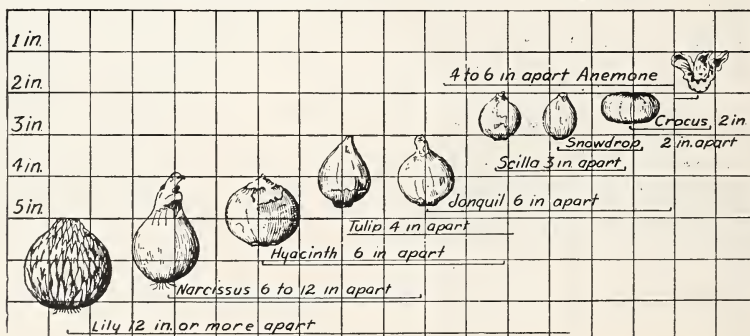 1 in.
2 in.
3 in
4 in.
5 in.
4 to 6 in apart Anemone
Crocus, 2 in
Snowdrop, 2 in. apart
Scilla 3 in apart
Jonquil 6 in apart
Tulip 4 in apart
Hyacinth 6 in apart
Narcissus 6 to 12 in apart
Lily 12 in. or more apart